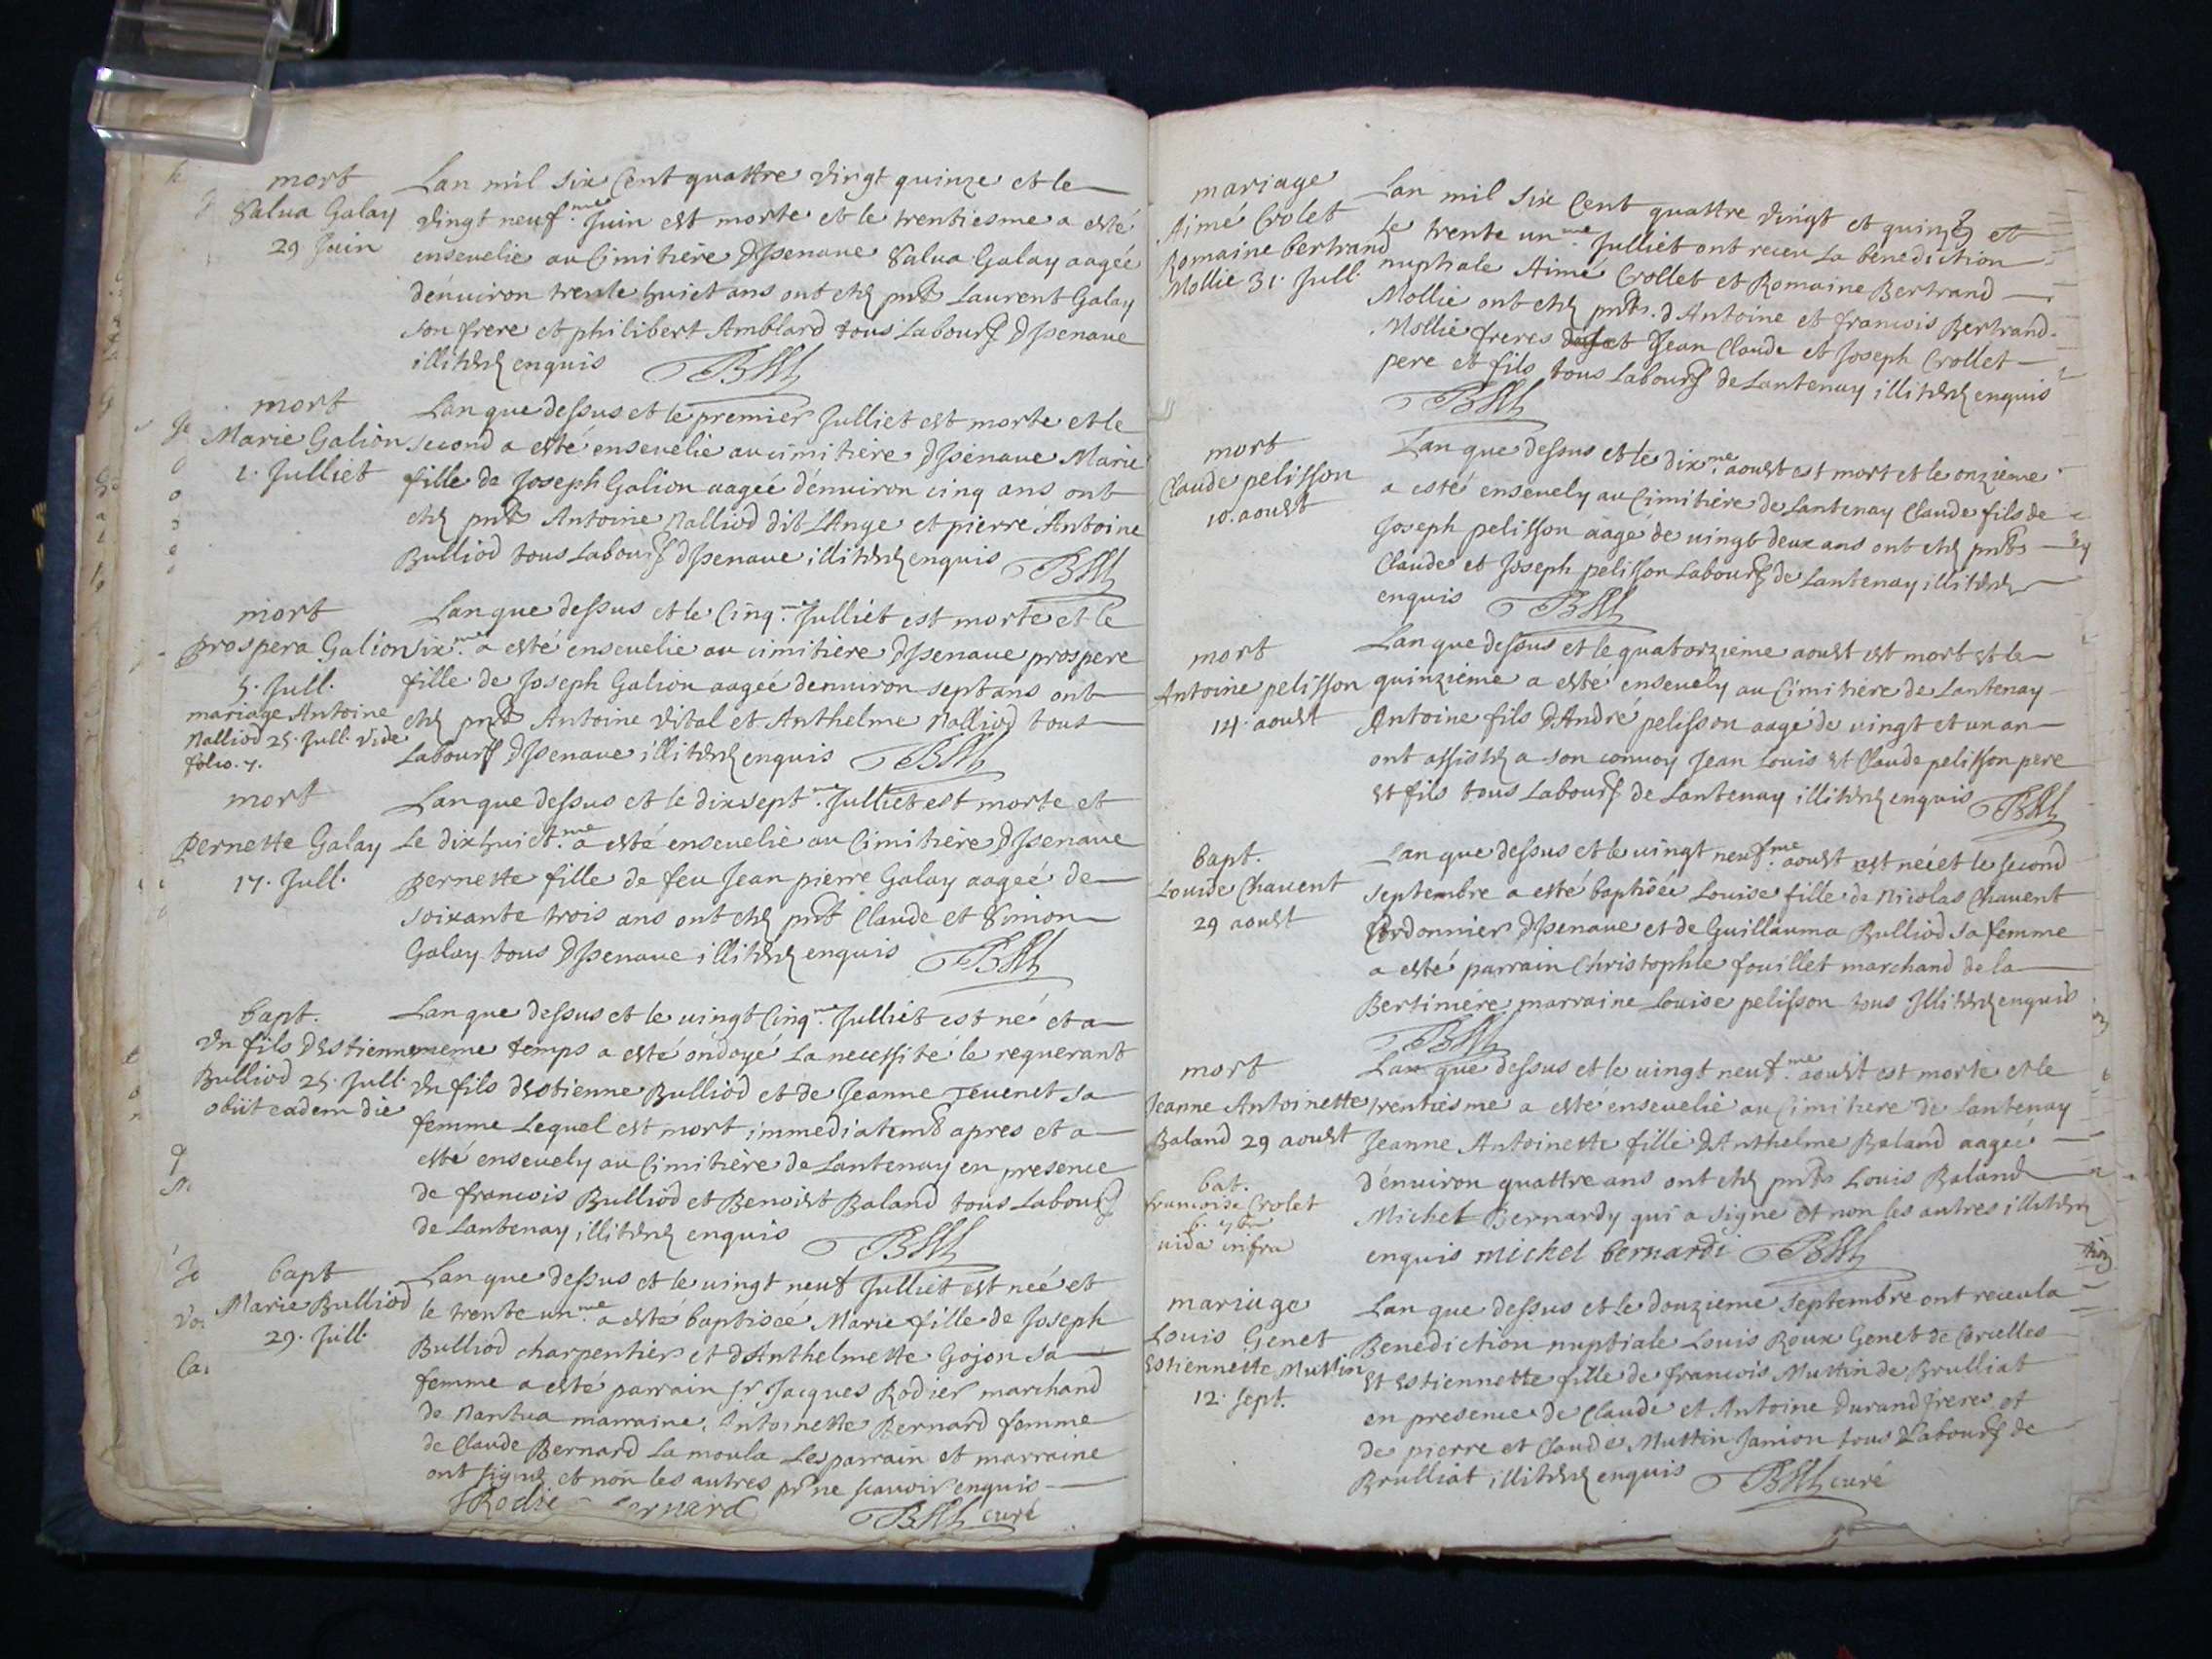 mort
Salua Galay
29 Juin
Lan mil six Cent quattre vingt quinze et le
vingt neuf.me Juin est morte et le trentiesme a esté
enseuelie au Cimitière DIsenaue Salua Galay aagée
dénuiron trente huict ans ont estés pnts Laurent Galay
son frere et philibert Amblard tous Labourrs DIsenaue
illitérés enquis
mort
Marie Galion
1. Julliet
Lan que dessus et le premier Julliet est morte et le
second a esté enseuelie au cimitière DIsenaue Marie
fille de Joseph Galion aagée dénuiron cinq ans ont
estés pnts Antoine Nalliod dit LAnge et pierre Antoine
Bulliod tous Labourrs DIsenaue illitérés enquis
mort
prospera Galion
5. Jull.
Lan que dessus et le Cinq.me Julliet est morte et le
six.me a esté enseuelie au cimitière DIsenaue prospere
fille de Joseph Galion aagée denuiron sept ans ont
estés pnts Antoine vital et Anthelme Nalliod tous
Labourrs DIsenaue illitérés enquis
mariage Antoine
Nalliod 25. Jull. vide
folio. 7.
mort
Pernette Galay
17. Jull.
Lan que dessus et le dix sept.me Julliet est morte et
Le dix huict.me a esté enseuelie au Cimitière DIsenaue
Pernette fille de feu Jean pierre Galay aagée de
soixante trois ans ont estés pnts Claude et Simon
Galay tous DIsenaue illitérés enquis
bapt.
Vn fils DEstienne
Bulliod 25. Jull.
obiit eadem die
Lan que dessus et le vingt Cinq.me Julliet est né et a
meme temps a esté ondoyé La necessité le requerant
Vn fils dEstienne Bulliod et de Jeanne Teuenet sa
femme Lequel est mort immediatemt apres et a
esté enseuely au Cimitière de Lantenay en presence
de francois Bulliod et Benoist Baland tous Labourrs
de Lantenay illitérés enquis
bapt
Marie Bulliod
29. Jull.
Lan que dessus et le vingt neuf Julliet est neé et
le trente un.me a esté baptisée Marie fille de Joseph
Bulliod charpentier et dAnthelmette Gojon sa
femme a esté parrain Sr. Jacques Rodier marchand
de Nantua marraine Antoinette Bernard femme
de Claude Bernard La moula Les parrain et marraine
ont signés et non les autres pr ne scauoir enquis
curé
mariage
Aimé Crolet
Romaine bertrand
Mollie 31. Jull.
Lan mil six Cent quattre vingt et quinze et
Le trente un.me Julliet ont receu La benediction
nuptiale Aimé Crollet et Romaine Bertrand
Mollie ont estés pnts. d Antoine et francois Bertrand
Mollie freres Jean Claude et Joseph Crollet
pere et fils tous Labourrs de Lantenay illitérés enquis
mort
Claude pelisson
10. aoust
Lan que dessus et le dix.me aoust est mort et le onzieme
a esté enseuely au Cimitière de Lantenay Claude fils de
Joseph pelisson aagé de vingt deux ans ont estés pnts
Claude et Joseph pelisson Labourrs de Lantenay illitérés
enquis
mort
Antoine pelisson
14. aoust
Lan que dessus et le quatorzieme aoust est mort et le
quinzieme a esté enseuely au Cimitière de Lantenay
Antoine fils DAndré pelisson aagé de vingt et un an
ont assistés a son conuoy Jean Louis et Claude pelisson pere
et fils tous Labourrs de Lantenay illitérés enquis
bapt.
Louise Chauent
29 aoust
Lan que dessus et le vingt neuf.me aoust est neé et le second
septembre a esté baptisée Louise fille de Nicolas Chauent
Cordonnier DIsenaue et de Guillauma Bulliod sa femme
a esté parrain Christophle fouillet marchand de la
Bertiniére marraine Louise pelisson tous Illitérés enquis
mort
Jeanne Antoinette
Baland 29 aoust
Lan que dessus et le vingt neuf.me aoust est morte et le
trentiesme a esté enseuelie au Cimitiere de Lantenay
Jeanne Antoinette fille DAnthelme Baland aageé
dénuiron quattre ans ont estés pnts Louis Baland
Michel Bernardy qui a signé et non les autres illitérés
enquis michel bernardi
bat.
francoise Crolet
6. 7bre
vide infra
mariage
Louis Genet
Estiennette Muttin
12. sept.
Lan que dessus et le douzieme septembre ont receu la
Benediction nuptiale Louis Roux Genet de Corcelles
et Estiennette fille de francois Muttin de Brulliat
en presence de Claude et Antoine Durand freres et
de pierre et Claude Muttin Janion tous Labourrs de
Brulliat illitérés enquis
curé